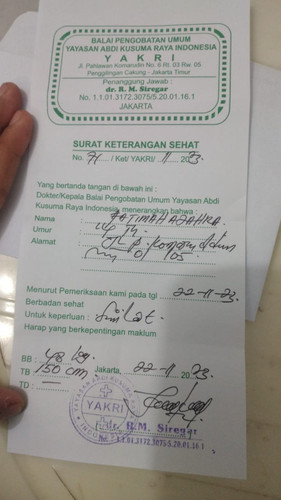 BALAI PENGOBATAN UMUM
YAYASAN ABDI KUSUMA RAYA INDONESIA
Y A K R I
Jl. Pahlawan Komarudin No. 6 Rt. 03 Rw. 05
Penggilingan Cakung - Jakarta Timur
Penanggung Jawab :
dr. R. M. Siregar
No. 1.1.01.3172.3075/5.20.01.16.1
JAKARTA
SURAT KETERANGAN SEHAT
No. / Ket/ YAKRI/ 11 2023
Yang bertanda tangan di bawah ini :
Dokter/Kepala Balai Pengobatan Umum Yayasan Abdi
Kusuma Raya Indonesia, menerangkan bahwa :
Nama FATIMAH AZAHRA
Umur Th
Alamat : Jl P. Komarudin
05
Menurut Pemeriksaan kami pada tgl 22-11-23
Berbadan sehat
Untuk keperluan : Silat.
Harap yang berkepentingan maklum
BB : 48 kg
TB : 150 cm Jakarta, 22-11 2023
TD : —
YAKRI
dr. R.M. Siregar
No. 1.1.01.3172.3075/5.20.01.16.1